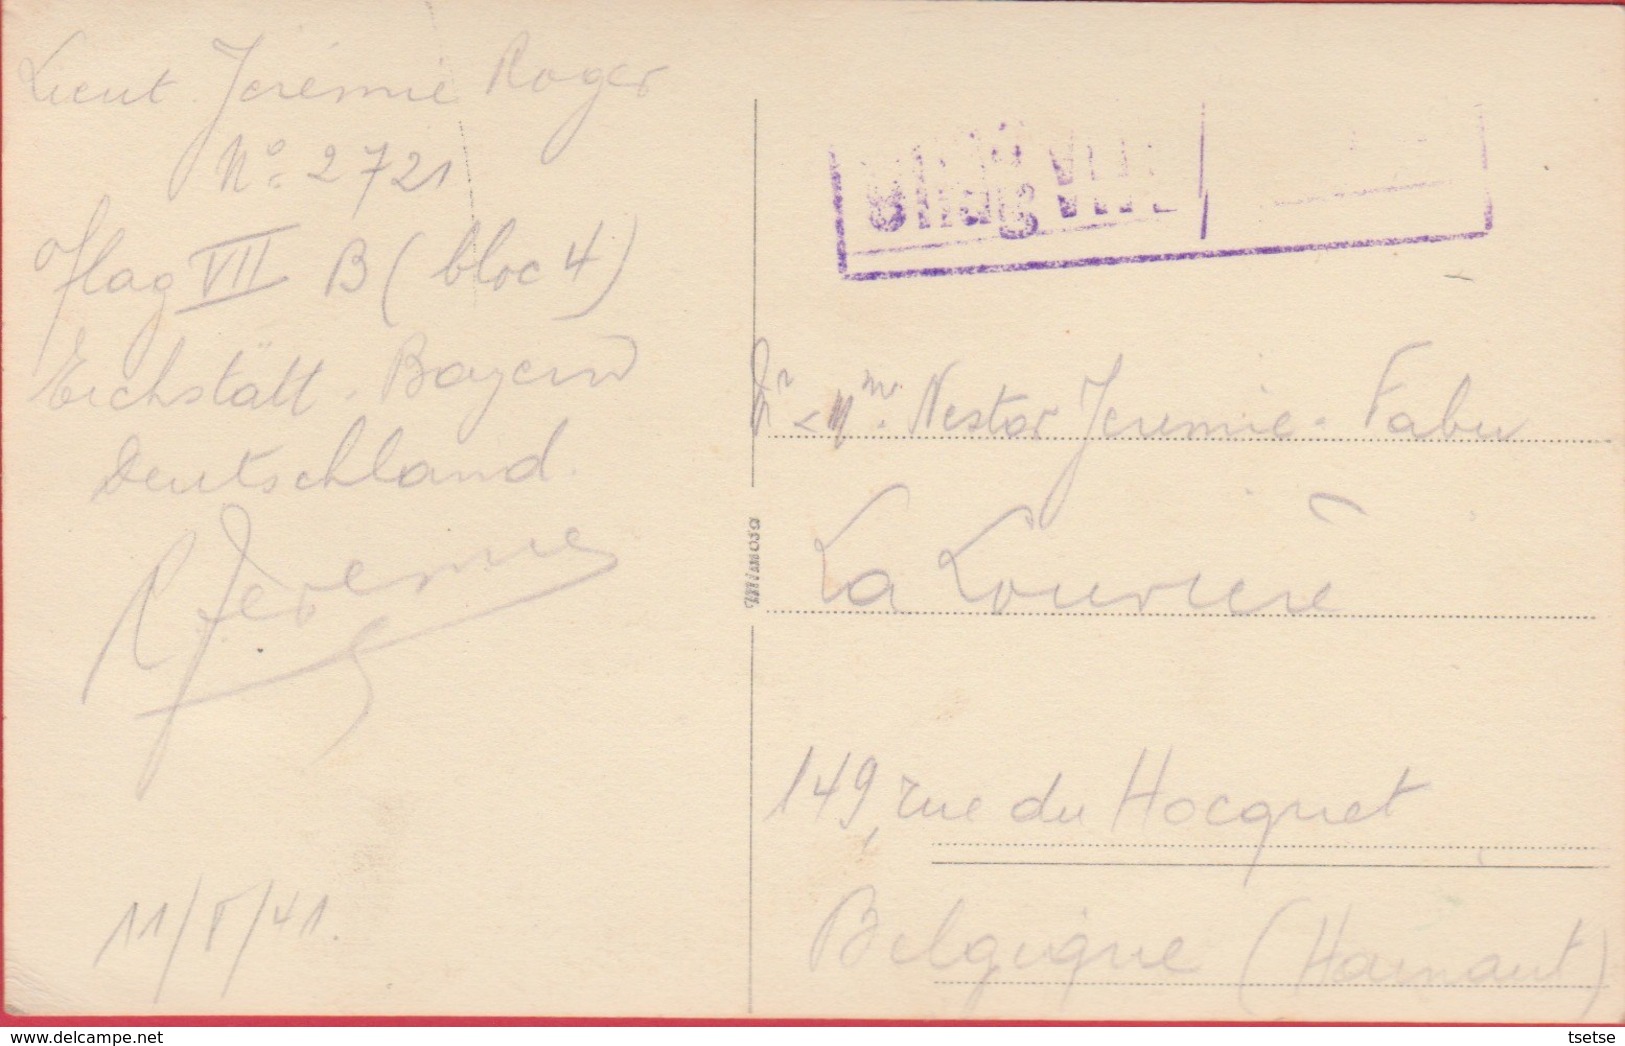 Lieut. Jérémie Roger
No. 2721
Oflag VII B (bloc 4)
Eichstätt. Bayern
Deutschland.
R Jeremie
11/V/41.
Mimosa
Nestor Jeremie. Fabry
La Louvière
149, rue du Hocquet
Belgique (Hainaut)
© tsetse